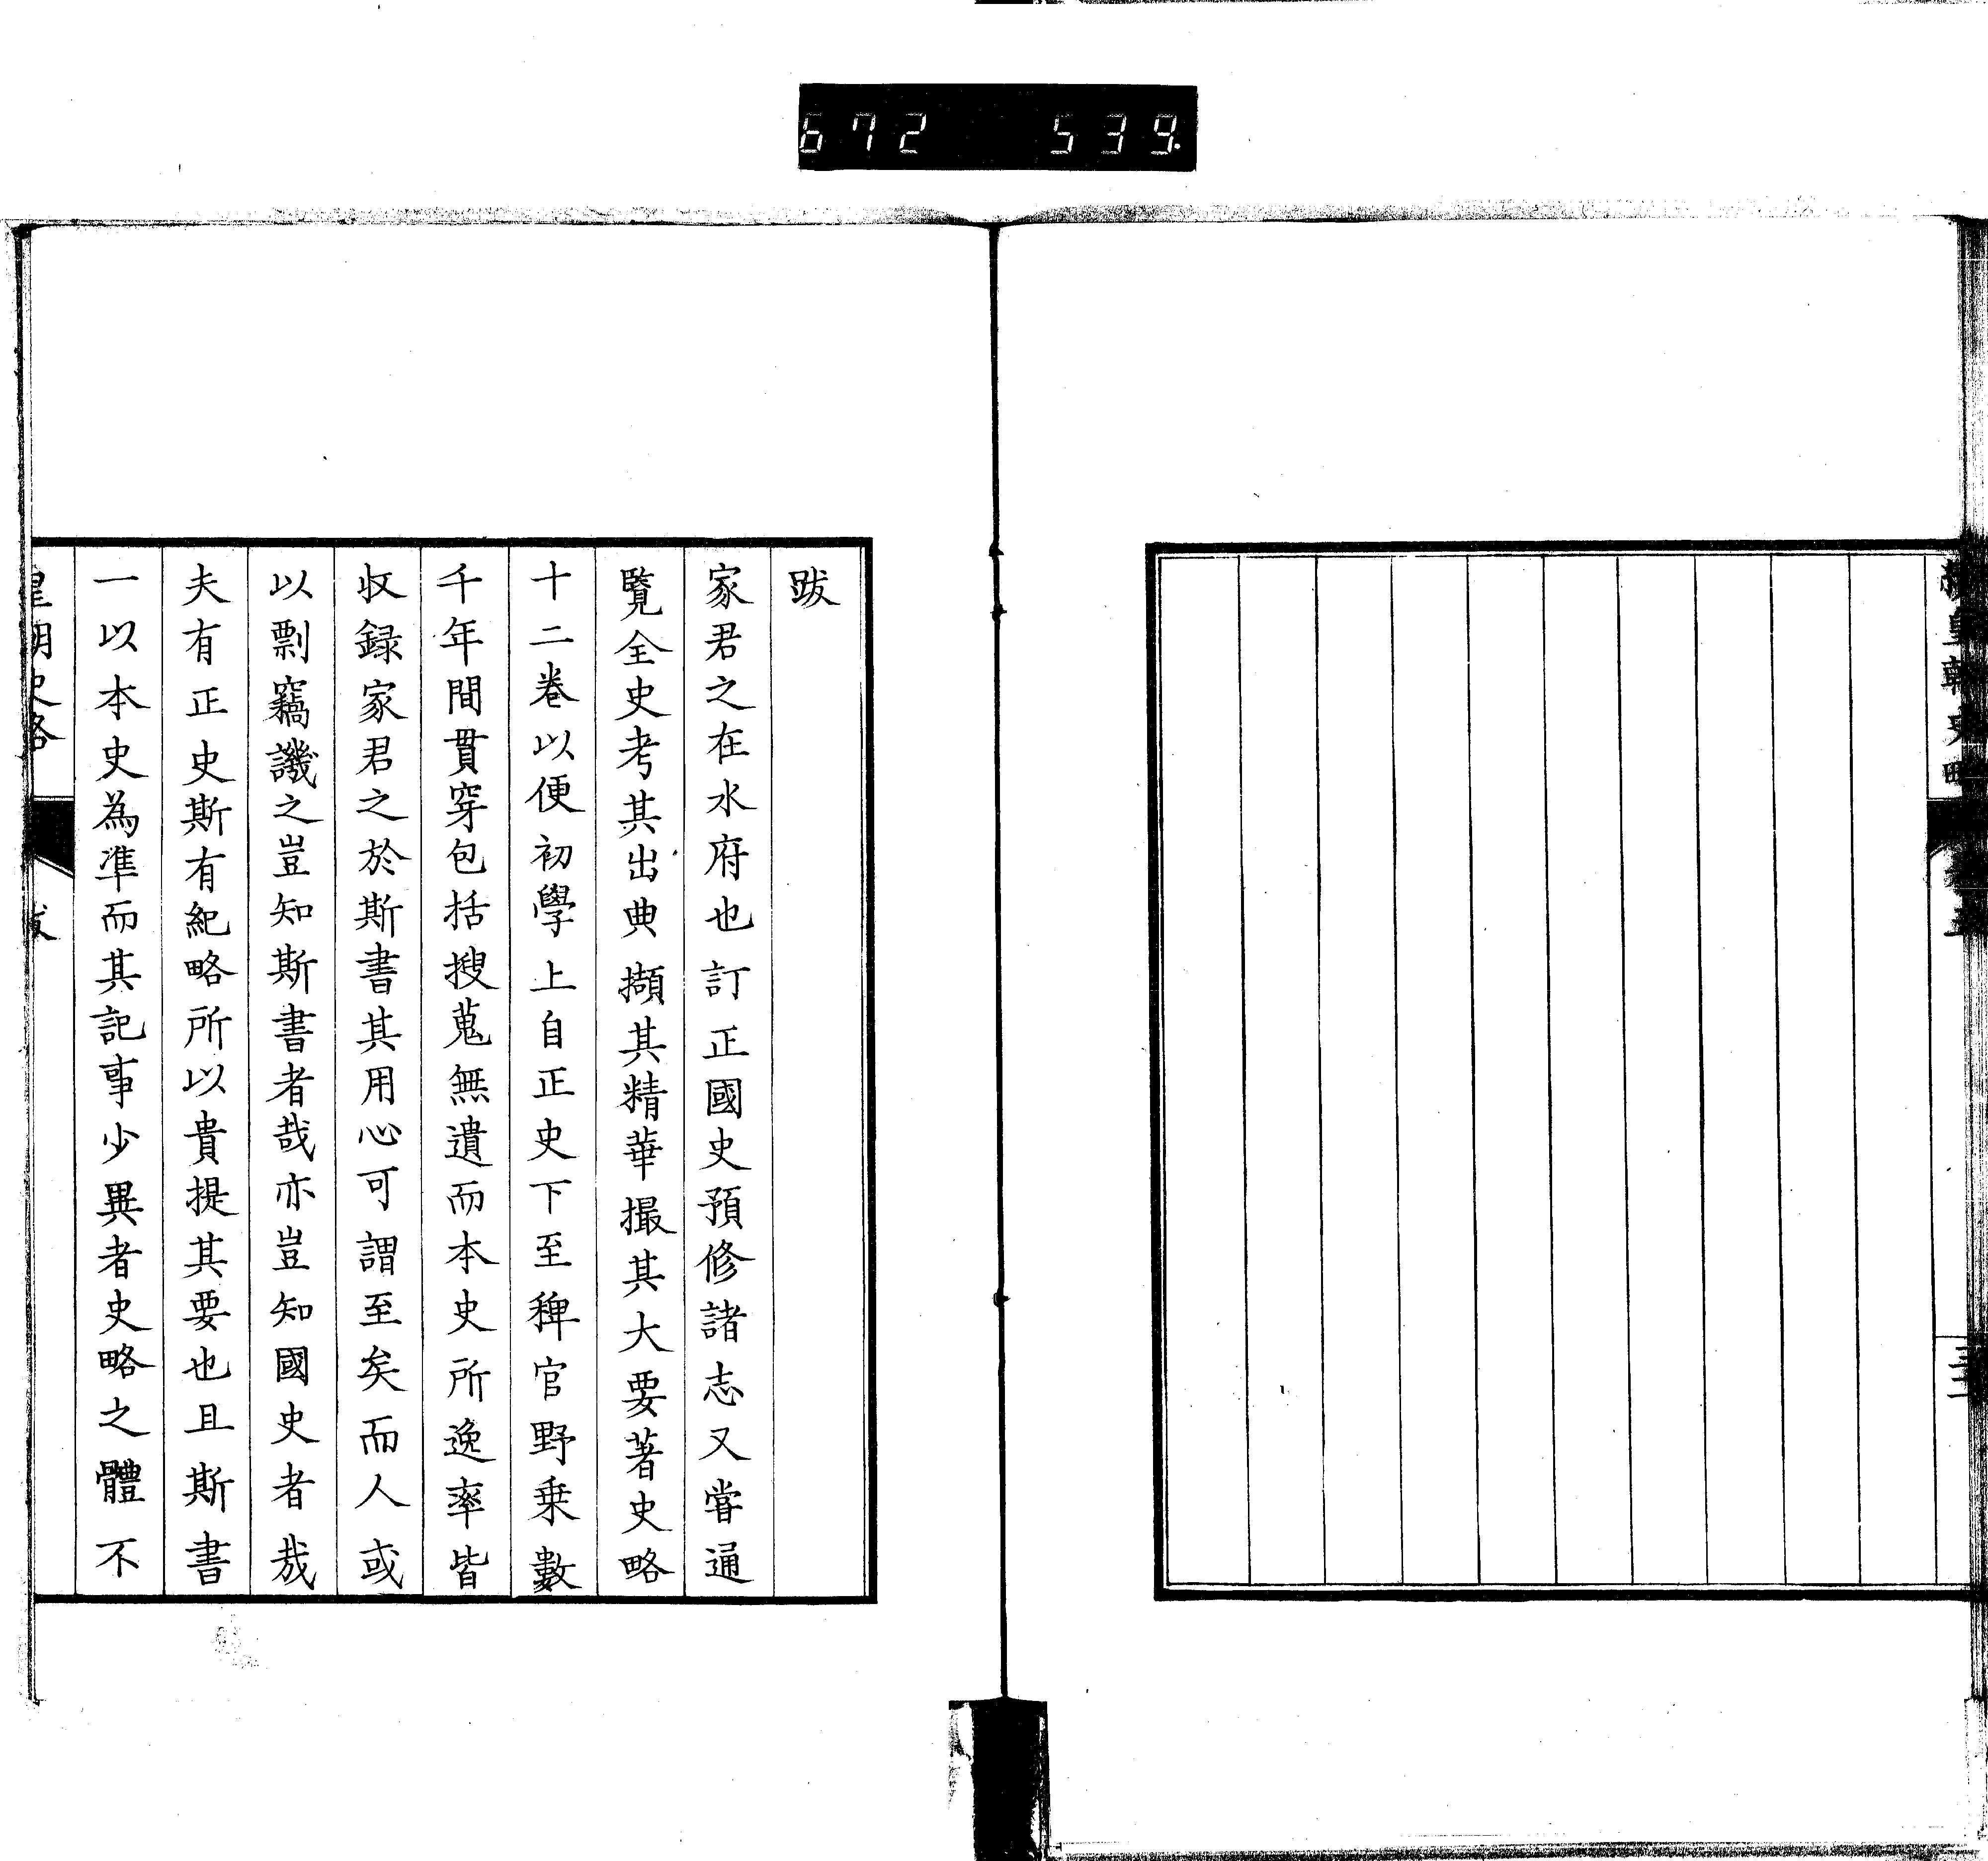 672 539.
跋
家君之在水府也訂正國史預修諸志又嘗通
覽全史考其出典擷其精華撮其大要著史略
十二卷以便初學上自正史下至稗官野乗數
千年間貫穿包括搜蒐無遺而本史所逸率皆
收録家君之於斯書其用心可謂至矣而人或
以剽竊譏之豈知斯書者哉亦豈知國史者哉
夫有正史斯有紀略所以貴提其要也且斯書
一以本史為準而其記事少異者史略之體不
皇朝史略